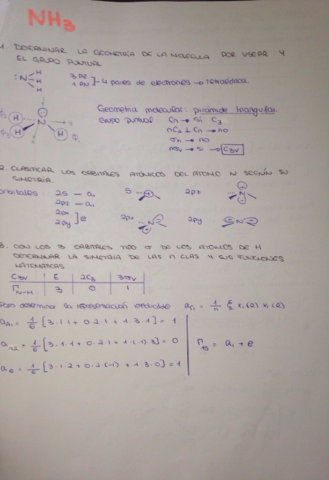 NH3
1. DETERMINAR LA GEOMETRÍA DE LA MOLÉCULA POR VSEPR Y
EL GRUPO PUNTUAL
3 PE
1 PNE
4 pares de electrones → Tetraédrica
Geometría molecular: pirámide triangular
Grupo puntual: Cn → sí C3
nC2 ⊥ Cn → no
σh → no
nσv → sí → C3v
2. CLASIFICAR LOS ORBITALES ATÓMICOS DEL ÁTOMO N SEGÚN SU
SIMETRÍA
orbitales 2s — a1 S 2pz
2pz — a1
2px
2py } e 2px 2py
3. CON LOS 3 ORBITALES TIPO σ DE LOS ÁTOMOS DE H
DETERMINAR LA SIMETRÍA DE LAS n CLAS Y SUS FUNCIONES
MATEMÁTICAS
C3v E 2C3 3σv
ΓN-H 3 0 1
Para determinar la representación reducible
aA1 = 1/6 [3·1·1 + 0·2·1 + 1·3·1] = 1
aA2 = 1/6 [3·1·1 + 0·2·1 + 1·(-1)·3] = 0
aE = 1/6 [3·1·2 + 0·2·(-1) + 1·3·0] = 1
= a1 + e